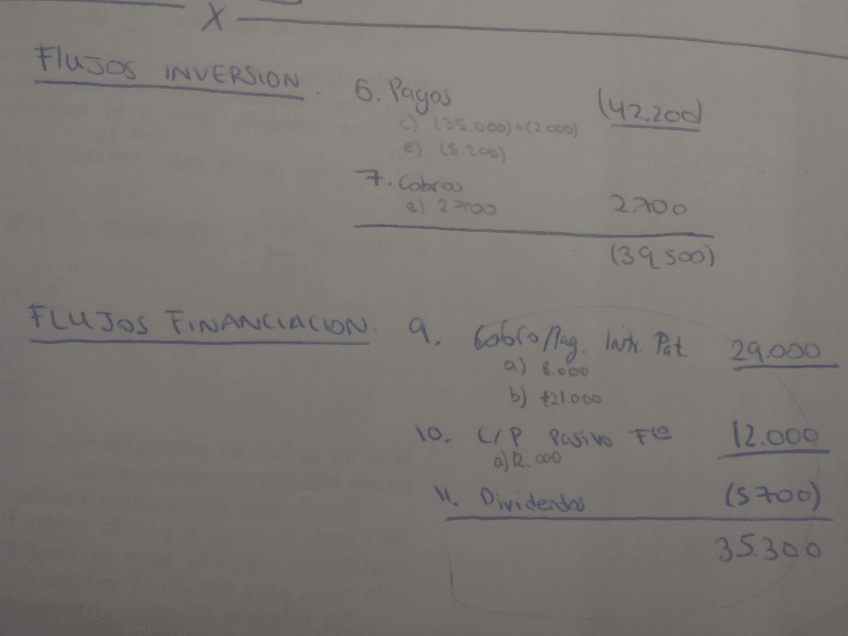 X
FLUJOS INVERSION. 6. Pagos (42.200)
c) (35.000)+(2000)
e) (5.200)
7. Cobros
e) 2.700 2.700
(39.500)
FLUJOS FINANCIACION. 9. Cobro/Pag. Pat. 29.000
a) 8.000
b) +21.000
10. C/P Pasivo Fco 12.000
a) 12.000
11. Dividendos (5.700)
35.300